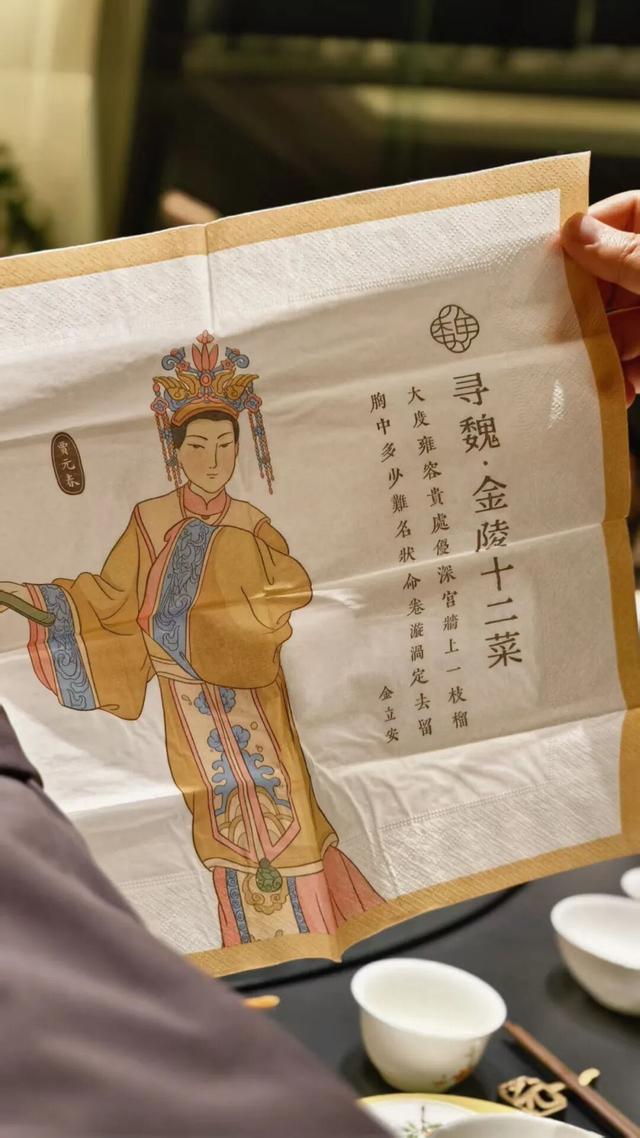 寻魏·金陵十二菜
大度雍容貴處優深宮牆上一枝榴
胸中多少難名狀命卷漩渦定去留
金立安
賈元春